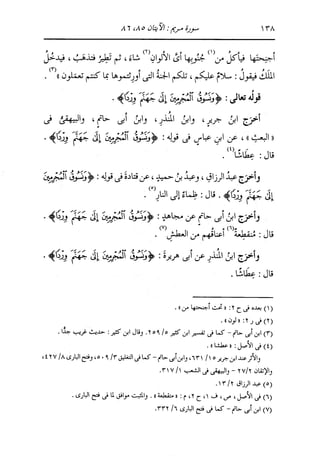 ١٣٨ سورة مريم : الآيتان ٨٥، ٨٦
أجنحتها فيأكل من(١) جُنوبِها أىَّ الألوان(٢) شاءَ ، ثم تَطِيرُ فتَذهَبُ ، فيدخلُ
الملَكُ فيقولُ : سلامٌ عليكم ، تلكم الجنةُ التى أورثتموها بما كنتم تعملون »(٣) .
قولُه تعالى : ﴿ وَنَسُوقُ ٱلْمُجْرِمِينَ إِلَىٰ جَهَنَّمَ وِرْدًا ﴾ .
أخرَج ابنُ جريرٍ ، وابنُ المنذرِ ، وابنُ أبى حاتمٍ ، والبيهقىُّ فى
« البعثِ » ، عن ابنِ عباسٍ فى قولِه : ﴿ وَنَسُوقُ ٱلْمُجْرِمِينَ إِلَىٰ جَهَنَّمَ وِرْدًا ﴾ .
قال : عِطاشًا(٤) .
وأخرَج عبدُ الرزاقِ ، وعبدُ بنُ حميدٍ ، عن قتادةَ فى قولِه : ﴿ وَنَسُوقُ ٱلْمُجْرِمِينَ
إِلَىٰ جَهَنَّمَ وِرْدًا ﴾ . قال : ظِماءً إلى النارِ(٥) .
وأخرَج ابنُ أبى حاتمٍ عن مجاهدٍ : ﴿ وَنَسُوقُ ٱلْمُجْرِمِينَ إِلَىٰ جَهَنَّمَ وِرْدًا ﴾ .
قال : مُتقطِّعةً(٦) أعناقُهم من العطشِ(٧) .
وأخرَج ابنُ المنذرِ عن أبى هريرةَ : ﴿ وَنَسُوقُ ٱلْمُجْرِمِينَ إِلَىٰ جَهَنَّمَ وِرْدًا ﴾ .
قال : عِطاشًا .
(١) بعده فى ح ٢ : « تحت أجنحتها من » .
(٢) فى ر ٢ : « لون » .
(٣) ابن أبى حاتم - كما فى تفسير ابن كثير ٢٥٩/٥ . وقال ابن كثير : حديث غريب جدًّا .
(٤) فى الأصل : « عطشا » .
والأثر عند ابن جرير ٦٣١/١٥ ، وابن أبى حاتم - كما فى التغليق ٥٠٩/٣ ، وفتح البارى ٤٢٧/٨ ،
والإتقان ٢٧/٢ - والبيهقى فى الشعب ٣١٧/١ .
(٥) عبد الرزاق ١٣/٢ .
(٦) فى الأصل ، ص ، ف ١ ، ح ٢ ، م : « منقطعة » . والمثبت موافق لما فى فتح البارى .
(٧) ابن أبى حاتم - كما فى فتح البارى ٣٣٢/٦ .